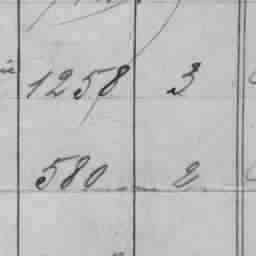 1258 3
580 2